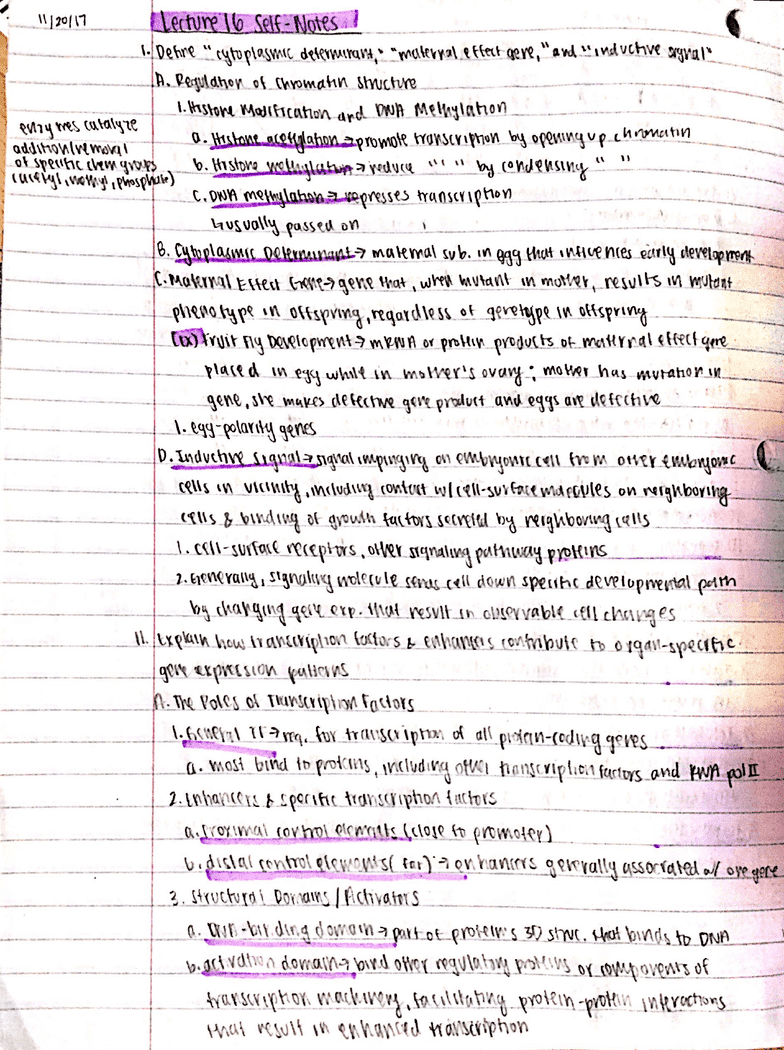 11/20/17
Lecture 16 Self-Notes
I. Define "cytoplasmic determinant," "maternal effect gene," and "inductive signal"
A. Regulation of chromatin structure
1. Histone Modification and DNA Methylation
enzymes catalyze
addition/removal
of specific chem groups
(acetyl, methyl, phosphate)
a. Histone acetylation → promote transcription by opening up chromatin
b. Histone methylation → reduce " " by condensing " "
c. DNA methylation → represses transcription
↳ usually passed on
B. Cytoplasmic Determinant → maternal sub. in egg that influences early development
C. Maternal Effect Gene → gene that, when mutant in mother, results in mutant
phenotype in offspring, regardless of genetype in offspring
(ex) Fruit Fly Development → mRNA or protein products of maternal effect gene
placed in egg while in mother's ovary; mother has mutation in
gene, she makes defective gene product and eggs are defective
1. egg-polarity genes
D. Inductive Signal → signal impinging on embryonic cell from other embryonic
cells in vicinity, including contact w/ cell-surface molecules on neighboring
cells & binding of growth factors secreted by neighboring cells
1. cell-surface receptors, other signaling pathway proteins
2. Generally, signaling molecule sends cell down specific developmental path
by changing gene exp. that result in observable cell changes
II. Explain how transcription factors & enhancers contribute to organ-specific
gene expression patterns
A. The Roles of Transcription Factors
1. General TF → req. for transcription of all protein-coding genes
a. most bind to proteins, including other transcription factors and RNA pol II
2. Enhancers & specific transcription factors
a. Proximal control elements (close to promoter)
b. distal control elements (far) → enhancers generally associated w/ one gene
3. Structural Domains / Activators
a. DNA-binding domain → part of protein's 3D struc. that binds to DNA
b. activation domain → bind other regulating proteins or components of
transcription machinery, facilitating protein-protein interactions
that result in enhanced transcription